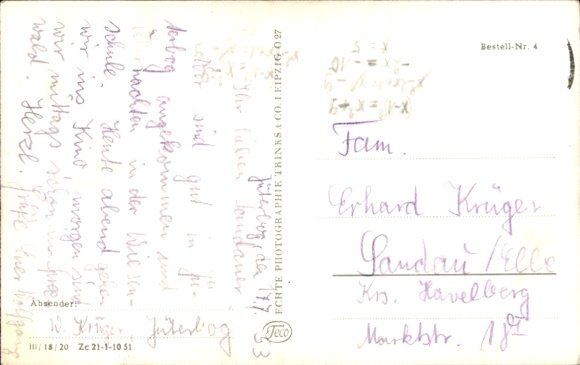 Jüterbog, den 17.7.53
Ihr lieben Sandauer
sind gut in Jü-
terbog angekommen und
in der Wiesen-
schule. Heute abend gehen
wir ins Kino, morgen sind
wir mittags schon im
wald. Herzl. Grüße Euer Wolfgang
Absender:
W. Krüger, Jüterbog
III/18/20 Ze 21-1-10 51
ECHTE PHOTOGRAPHIE TRINKS & CO. LEIPZIG O 27
Teco
Bestell-Nr. 4
Fam.
Erhard Krüger
Sandau/Elbe
Krs. Havelberg
Marktstr. 18